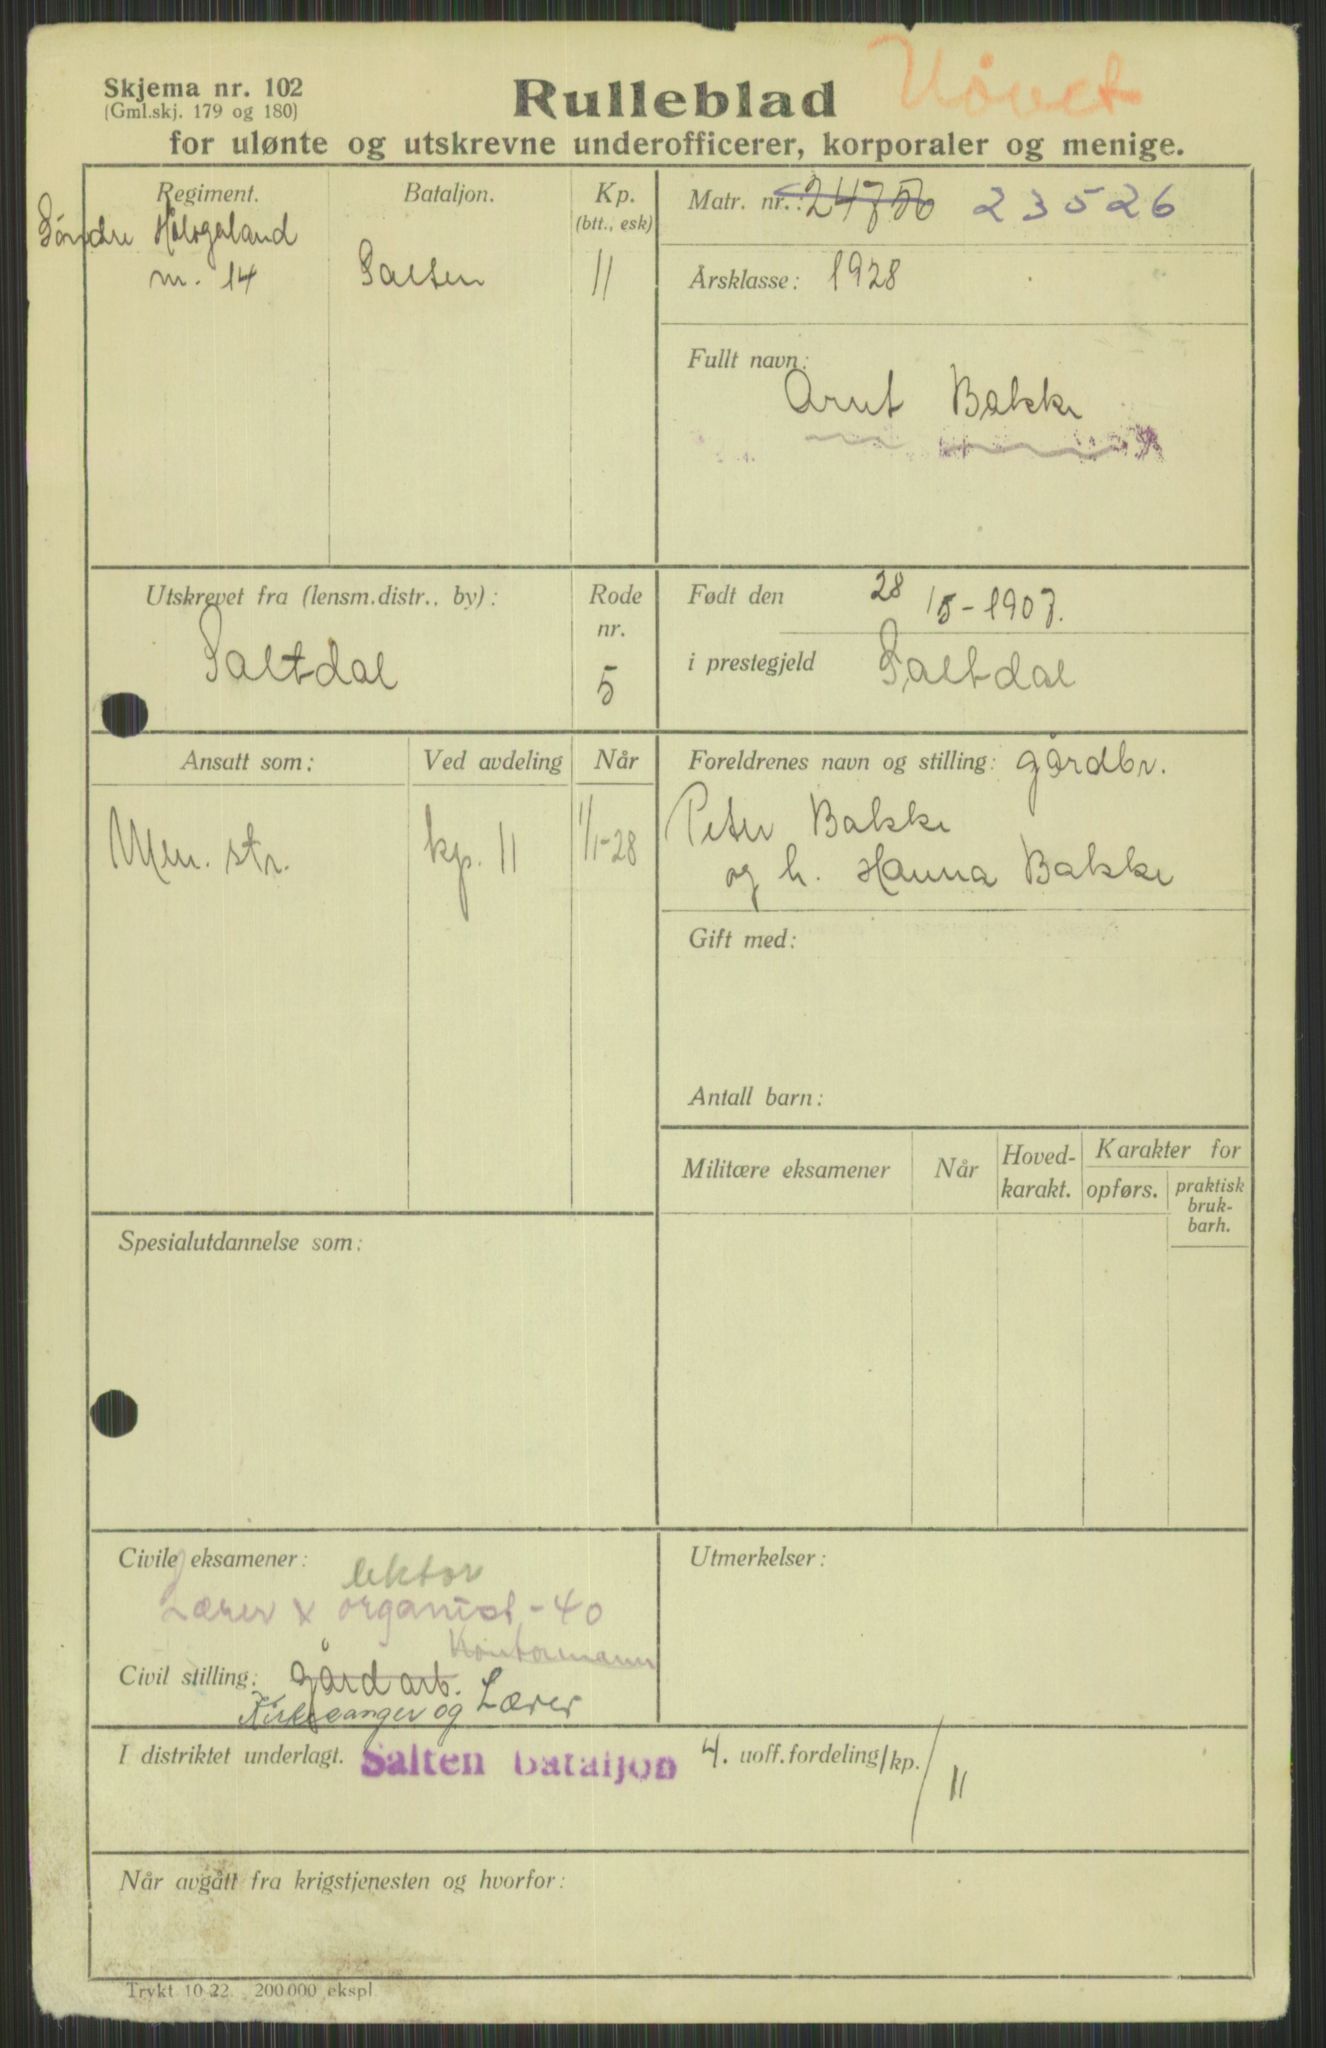 Skjema nr. 102
(Gml.skj. 179 og 180)
Rulleblad
Uövet
for ulønte og utskrevne underofficerer, korporaler og menige.
Regiment. Bataljon. Kp.
(btt., esk)
Söndre Hålogaland
nr. 14 Salten 11
Matr. nr.: 23526
Årsklasse: 1928
Fullt navn:
Arnt Bakke
Utskrevet fra (lensm.distr., by): Rode
nr.
Saltdal 5
Født den 28/5-1907.
i prestegjeld Saltdal
Ansatt som: Ved avdeling Når
Men. str. kp. 11 1/1-28
Foreldrenes navn og stilling: gårdbr.
Peter Bakke
og h. Hanna Bakke
Gift med:
Antall barn:
Militære eksamener Når Hoved-
karakt. Karakter for
opførs. praktisk
bruk-
barh.
Spesialutdannelse som:
Civile eksamener: lektor
Lærer & organist - 40
Kontormann
Civil stilling: gårdarb.
Kirkesanger og Lærer
Utmerkelser:
I distriktet underlagt. Salten Bataljon 4. uoff.fordeling/kp./11
Når avgått fra krigstjenesten og hvorfor:
Trykt 10-22. 200.000 ekspl.